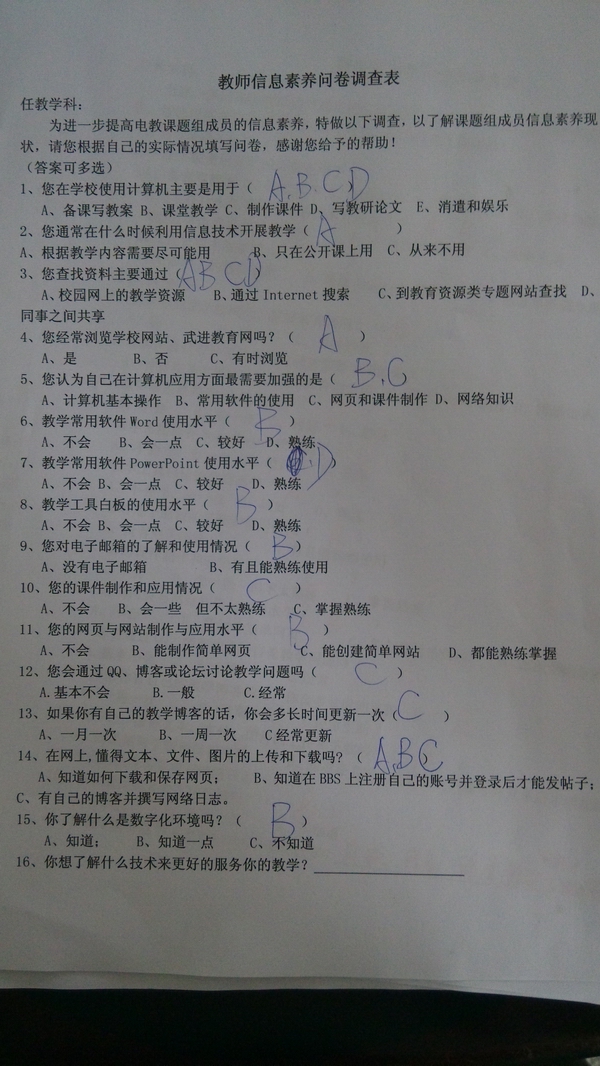 教师信息素养问卷调查表
任教学科：
为进一步提高电教课题组成员的信息素养，特做以下调查，以了解课题组成员信息素养现
状，请您根据自己的实际情况填写问卷，感谢您给予的帮助！
（答案可多选）
1、您在学校使用计算机主要是用于（ A、B、C、D ）
A、备课写教案 B、课堂教学 C、制作课件 D、写教研论文 E、消遣和娱乐
2、您通常在什么时候利用信息技术开展教学（ A ）
A、根据教学内容需要尽可能用 B、只在公开课上用 C、从来不用
3、您查找资料主要通过（ A B C D ）
A、校园网上的教学资源 B、通过 Internet 搜索 C、到教育资源类专题网站查找 D、
同事之间共享
4、您经常浏览学校网站、武进教育网吗？（ A ）
A、是 B、否 C、有时浏览
5、您认为自己在计算机应用方面最需要加强的是（ B、C ）
A、计算机基本操作 B、常用软件的使用 C、网页和课件制作 D、网络知识
6、教学常用软件 Word 使用水平（ B ）
A、不会 B、会一点 C、较好 D、熟练
7、教学常用软件 PowerPoint 使用水平（ D ）
A、不会 B、会一点 C、较好 D、熟练
8、教学工具白板的使用水平（ B ）
A、不会 B、会一点 C、较好 D、熟练
9、您对电子邮箱的了解和使用情况（ B ）
A、没有电子邮箱 B、有且能熟练使用
10、您的课件制作和应用情况（ C ）
A、不会 B、会一些 但不太熟练 C、掌握熟练
11、您的网页与网站制作与应用水平（ B ）
A、不会 B、能制作简单网页 C、能创建简单网站 D、都能熟练掌握
12、您会通过 QQ、博客或论坛讨论教学问题吗（ C ）
A.基本不会 B.一般 C.经常
13、如果你有自己的教学博客的话，你会多长时间更新一次（ C ）
A、一月一次 B、一周一次 C 经常更新
14、在网上,懂得文本、文件、图片的上传和下载吗？（ A、B C ）
A、知道如何下载和保存网页； B、知道在 BBS 上注册自己的账号并登录后才能发帖子；
C、有自己的博客并撰写网络日志。
15、你了解什么是数字化环境吗？（ B ）
A、知道； B、知道一点 C、不知道
16、你想了解什么技术来更好的服务你的教学？